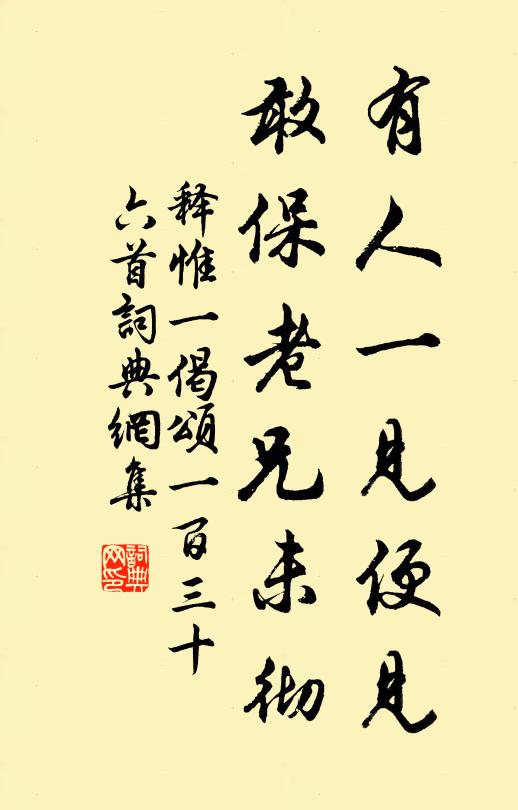 有人一見便見
敢保老兄未彻
释惟一偈頌一百三十
六首詞典網集
詞典网印